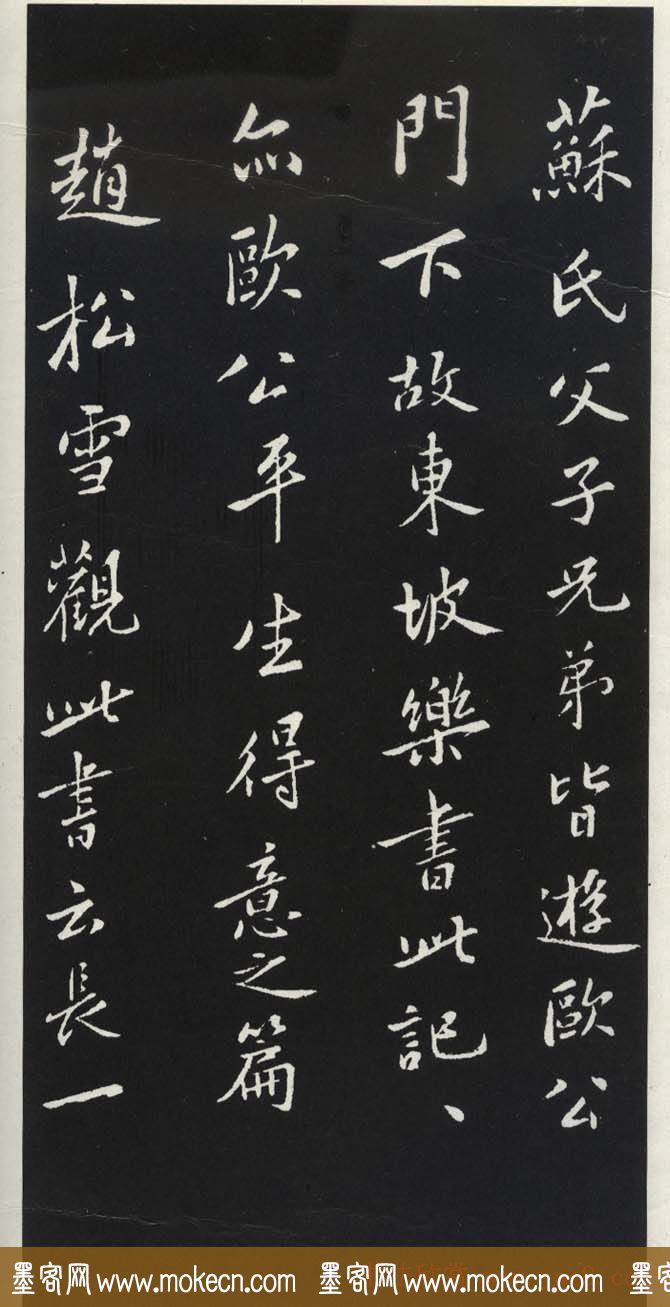 蘇氏父子兄弟皆遊歐公
門下故東坡樂書此記、
亦歐公平生得意之篇
趙松雪觀此書云長一
墨客网 www.mokecn.com 墨客网 www.mokecn.com 墨客